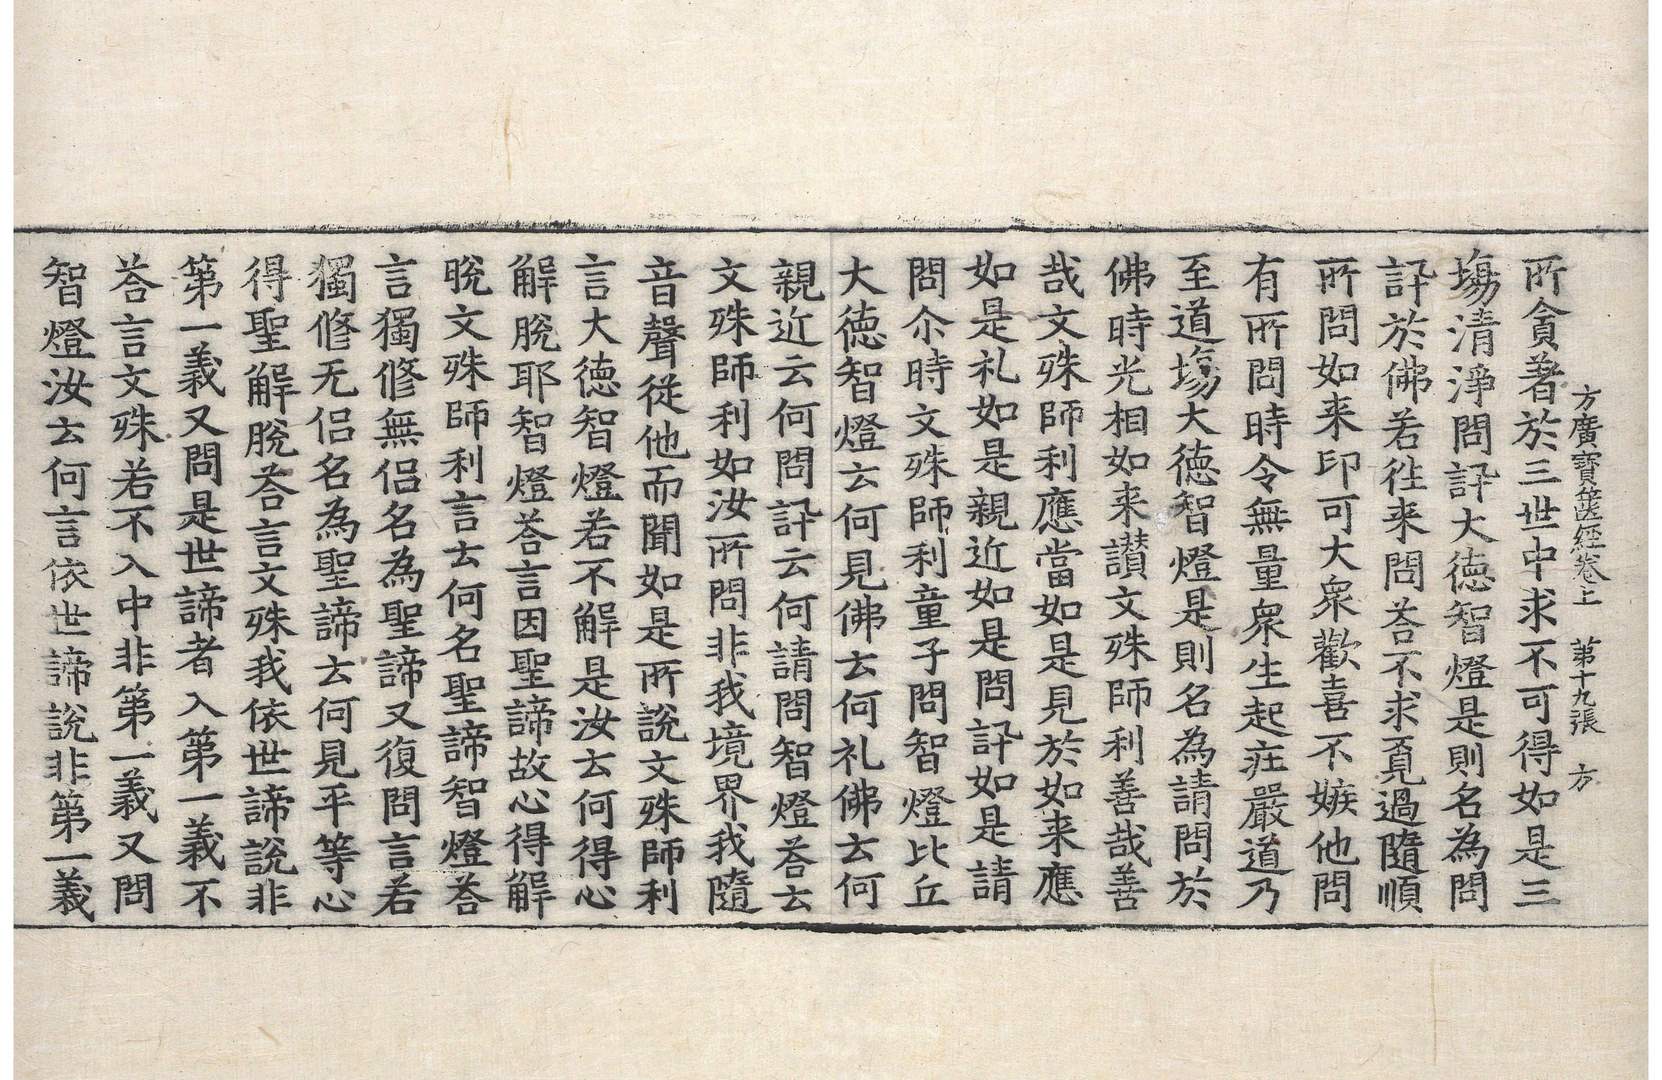 方廣寶篋經卷上 第十九張 方
所貪著於三世中求不可得如是三
場清淨問訊大德智燈是則名為問
訊於佛若往来問荅不求覓過隨順
所問如来印可大衆歡喜不嫉他問
有所問時令無量衆生起莊嚴道乃
至道場大德智燈是則名為請問於
佛時光相如来讃文殊師利善哉善
哉文殊師利應當如是見於如来應
如是礼如是親近如是問訊如是請
問尒時文殊師利童子問智燈比丘
大德智燈云何見佛云何礼佛云何
親近云何問訊云何請問智燈荅云
文殊師利如汝所問非我境界我隨
音聲從他而聞如是所說文殊師利
言大德智燈若不解是汝云何得心
解脫耶智燈荅言因聖諦故心得解
脫文殊師利言云何名聖諦智燈荅
言獨修無侣名為聖諦又復問言若
獨修无侣名為聖諦云何見平等心
得聖解脫荅言文殊我依世諦說非
第一義又問是世諦者入第一義不
荅言文殊若不入中非第一義又問
智燈汝云何言依世諦說非第一義